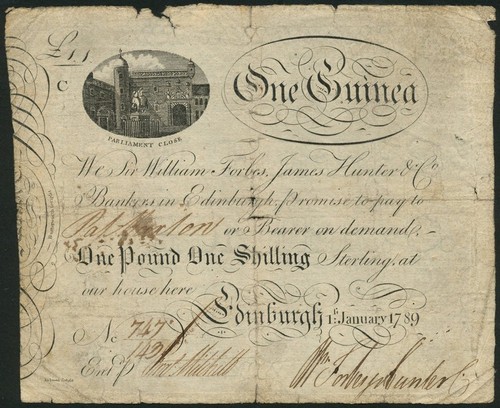 £1,,1
C
PARLIAMENT CLOSE
One Guinea
We Sir William Forbes, James Hunter & Co.
Bankers in Edinburgh, Promise to pay to
or Bearer on demand,
One Pound One Shilling Sterling, at
our house here
Edinburgh 1st January 1789
No
Ent. p
Wm Forbes J Hunter & Co